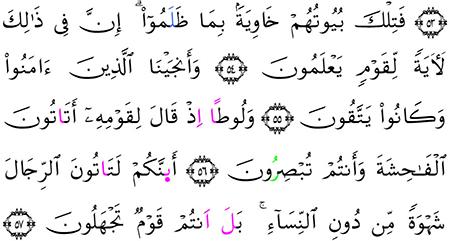 ﴿٥٣﴾ فَتِلْكَ بُيُوتُهُمْ خَاوِيَةَۢ بِمَا ظَلَمُوٓا۟ ۗ إِنَّ فِى ذَٰلِكَ
لَأٓيَةً لِّقَوْمٍ يَعْلَمُونَ ﴿٥٤﴾ وَأَنجَيْنَا ٱلَّذِينَ ءَامَنُوا۟
وَكَانُوا۟ يَتَّقُونَ ﴿٥٥﴾ وَلُوطًا اِذْ قَالَ لِقَوْمِهِۦٓ أَتَاتُونَ
ٱلْفَٰحِشَةَ وَأَنتُمْ تُبْصِرُونَ ﴿٥٦﴾ أَىِٕنَّكُمْ لَتَاتُونَ ٱلرِّجَالَ
شَهْوَةً مِّن دُونِ ٱلنِّسَآءِ ۚ بَلَ اَنتُمْ قَوْمٌ تَجْهَلُونَ ﴿٥٧﴾